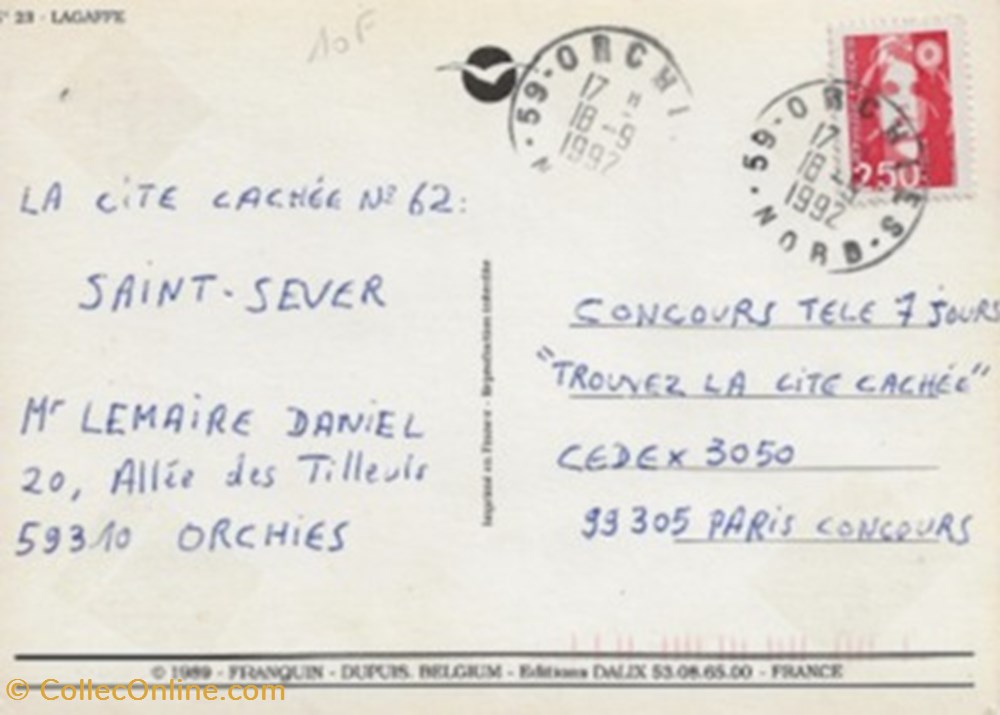 N° 23 - LAGAFFE
10F
59-ORCHI
17 H
18-9
1992
N
59-ORCHIES
17
18-9
1992
NORD
2,50
LA CITE CACHÉE N° 62:
SAINT-SEVER
Mr LEMAIRE DANIEL
20, Allée des Tilleuls
59310 ORCHIES
Imprimé en France - Reproduction interdite
CONCOURS TELE 7 JOURS
"TROUVEZ LA CITE CACHÉE"
CEDEX 3050
99305 PARIS CONCOURS
© 1989 - FRANQUIN - DUPUIS. BELGIUM - Editions DALIX 53.08.65.00 - FRANCE
© CollecOnline.com